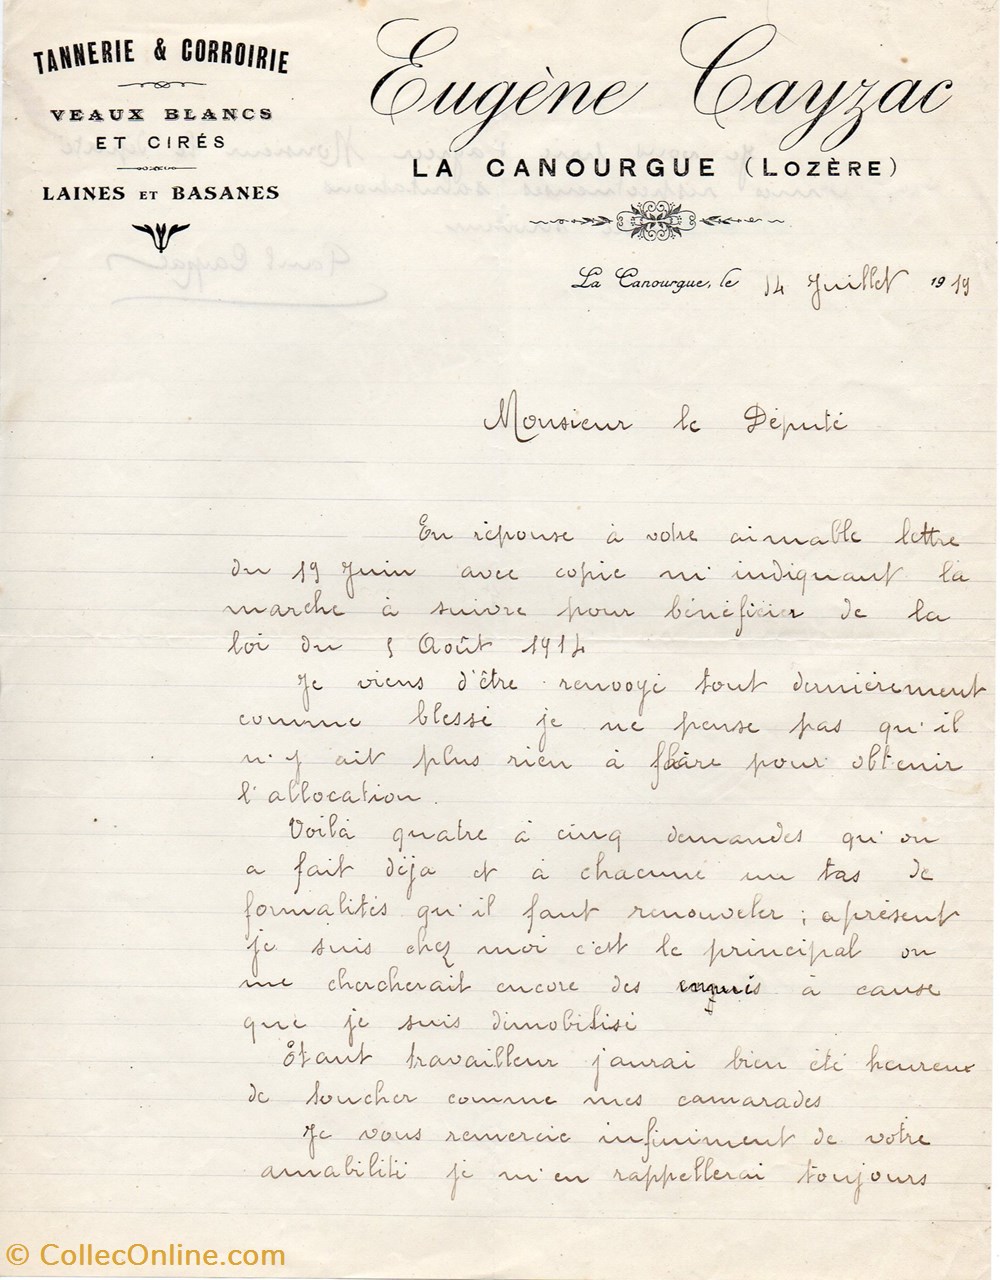 TANNERIE & CORROIRIE
VEAUX BLANCS
ET CIRÉS
LAINES ET BASANES
Eugène Cayzac
LA CANOURGUE (LOZÈRE)
La Canourgue, le 14 Juillet 1919
Monsieur le Député
En réponse à votre aimable lettre
du 19 Juin avec copie m'indiquant la
marche à suivre pour bénéficier de la
loi du 5 Août 1914
Je viens d'être renvoyé tout dernièrement
comme blessé je ne pense pas qu'il
n'y ait plus rien à faire pour obtenir
l'allocation.
Voilà quatre à cinq demandes qu'on
a fait déja et à chacune un tas de
formalités qu'il faut renouveler ; aprésent
je suis chez moi c'est le principal on
me chercherait encore des à cause
que je suis démobilisé
Etant travailleur j'aurai bien été heureux
de toucher comme mes camarades
Je vous remercie infiniment de votre
amabilité je m'en rappellerai toujours
© CollecOnline.com